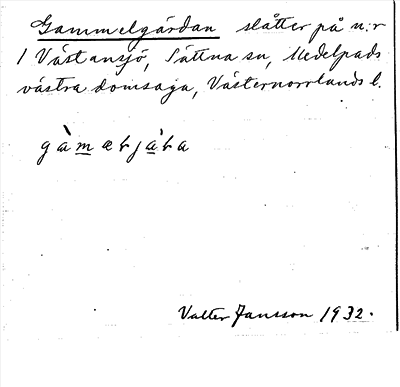 Gammelgårdan slåtter på n:r
1 Västansjö, Sättna sn, Medelpads
västra domsaga, Västernorrlands l.
Valter Jansson 1932.